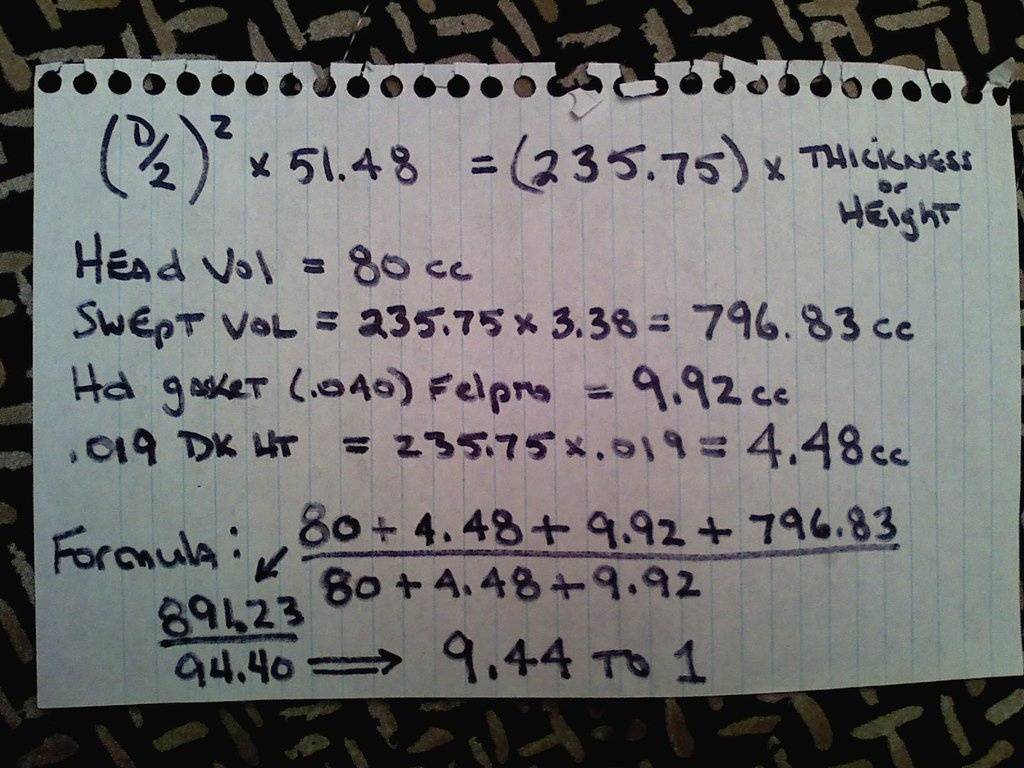 (D/2)² x 51.48 = (235.75) x THICKNESS
or
HEIGHT
HEAD Vol = 80 cc
SWEPT VOL = 235.75 x 3.38 = 796.83 cc
Hd gasket (.040) Felpro = 9.92 cc
.019 DK HT = 235.75 x .019 = 4.48 cc
Formula: 80 + 4.48 + 9.92 + 796.83
80 + 4.48 + 9.92
891.23
94.40 ⟹ 9.44 TO 1